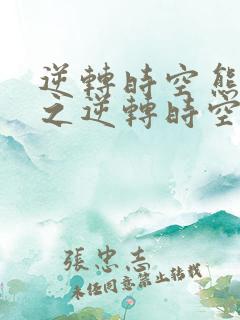 逆轉時空熊
之逆轉時空
張忠志
未经同意禁止转载